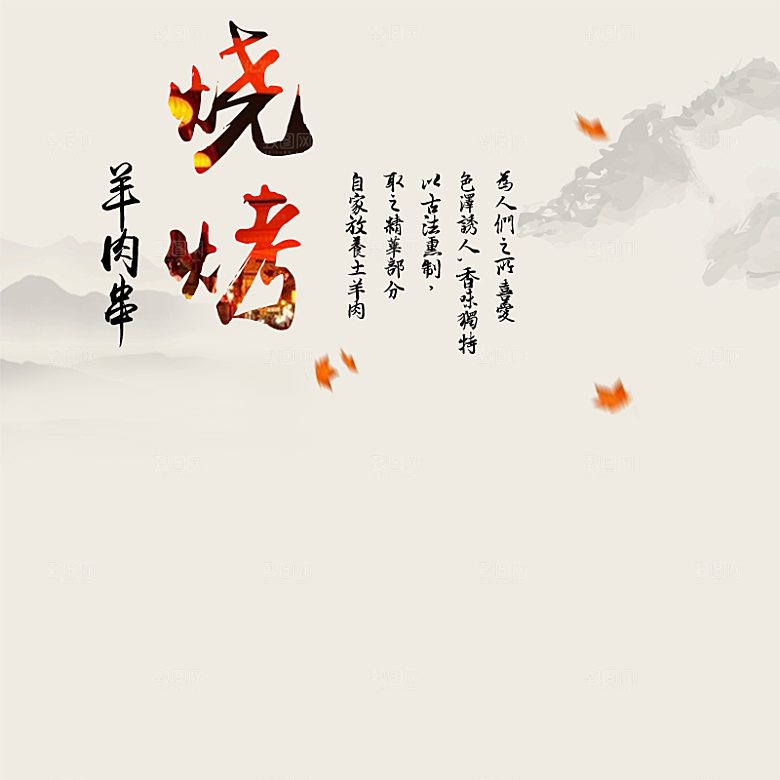 烧烤
羊肉串
自家放養土羊肉
取之精華部分
以古法熏制，
色澤誘人，香味獨特
為人們之所喜愛